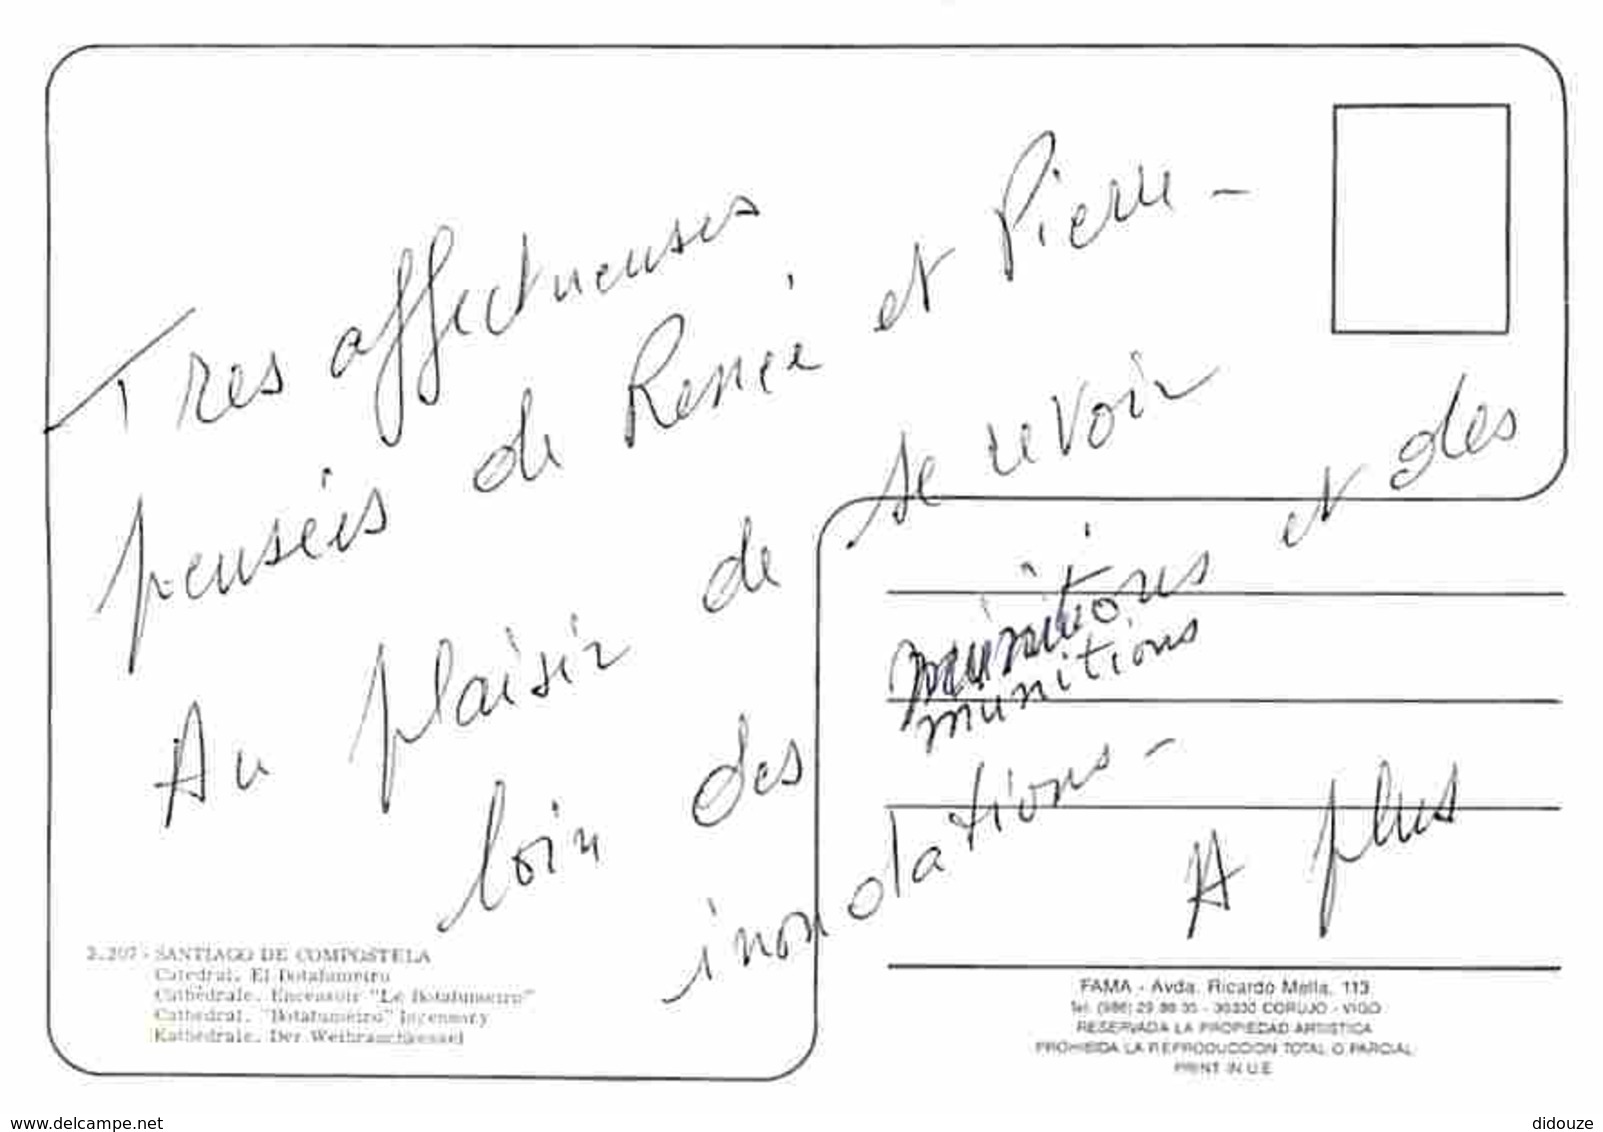 Tres affectueuses
pensées de Renée et Pierre -
Au plaisir de se revoir
loin des munitions et des
munitions
inondations -
A plus
2.207 - SANTIAGO DE COMPOSTELA
Catedral. El Botafumeiro
Cathédrale. Encensoir "Le Botafumeiro"
Cathedral. "Botafumeiro" Incensory
Kathedrale. Der Weihrauchkessel
FAMA - Avda. Ricardo Mella, 113
CORUJO - VIGO
RESERVADA LA PROPIEDAD ARTISTICA
PROHIBIDA LA REPRODUCCION TOTAL O PARCIAL
PRINT IN U.E.
www.delcampe.net
didouze